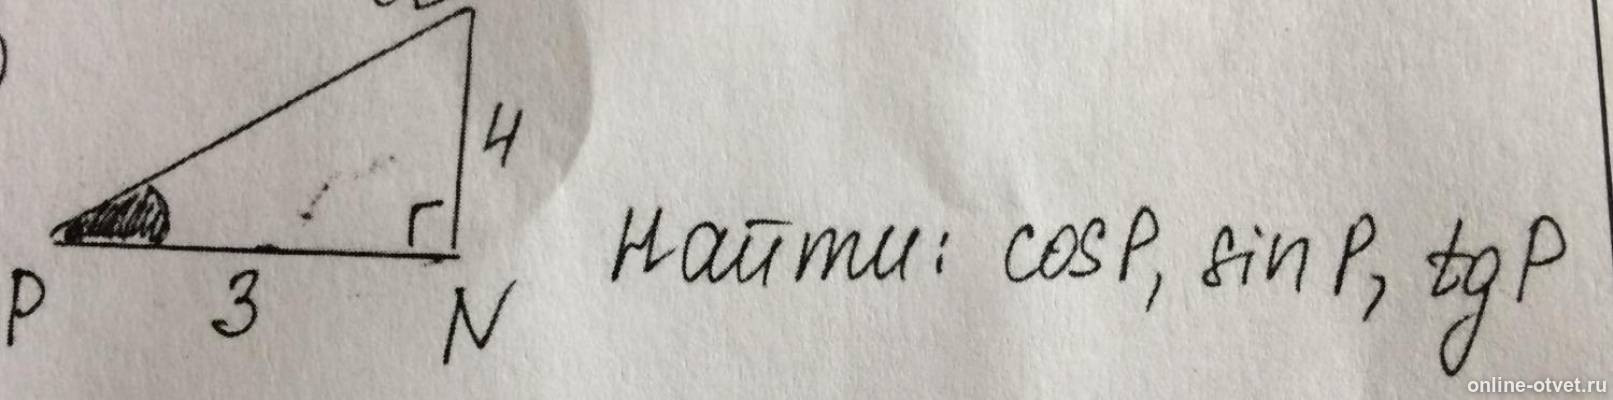 4
Найти: cosP, sin P, tg P
P 3 N
online-otvet.ru